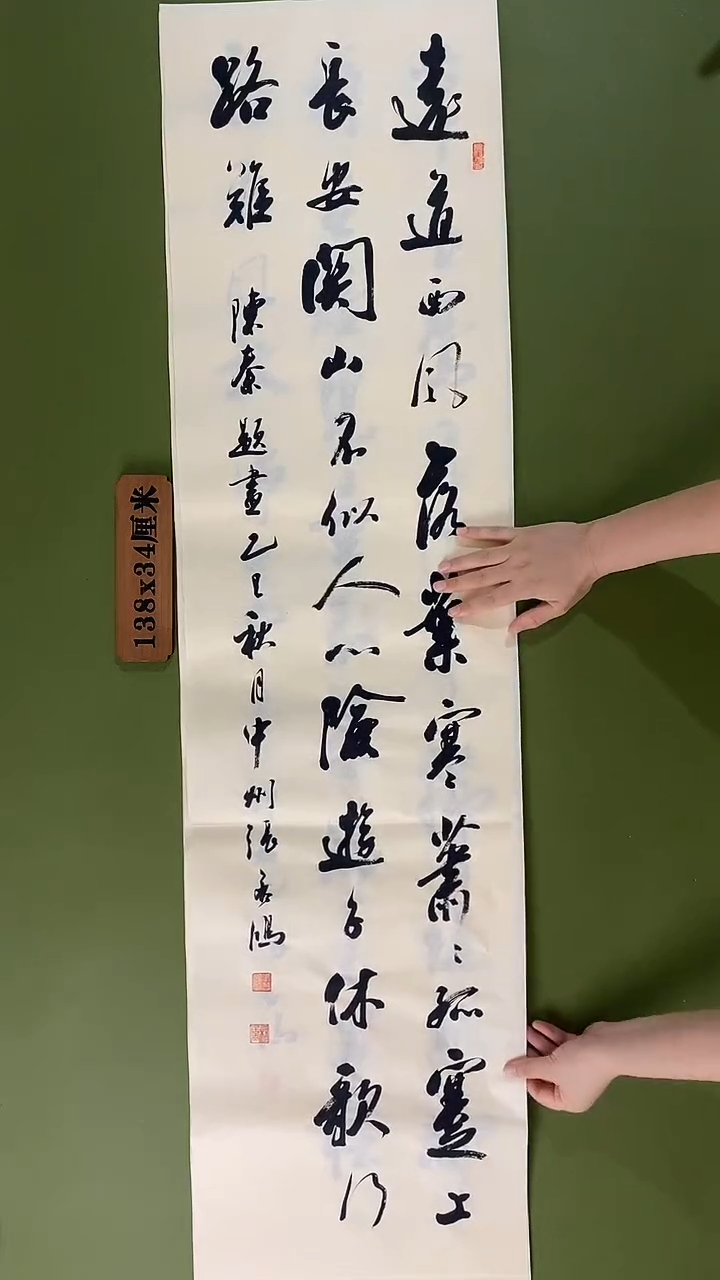 遠道西風落葉寒蕭〻孤蹇上
長安關山不似人心險遊子休歌行
路難
陳 題畫乙巳秋月中州張 鴻
138x34厘米